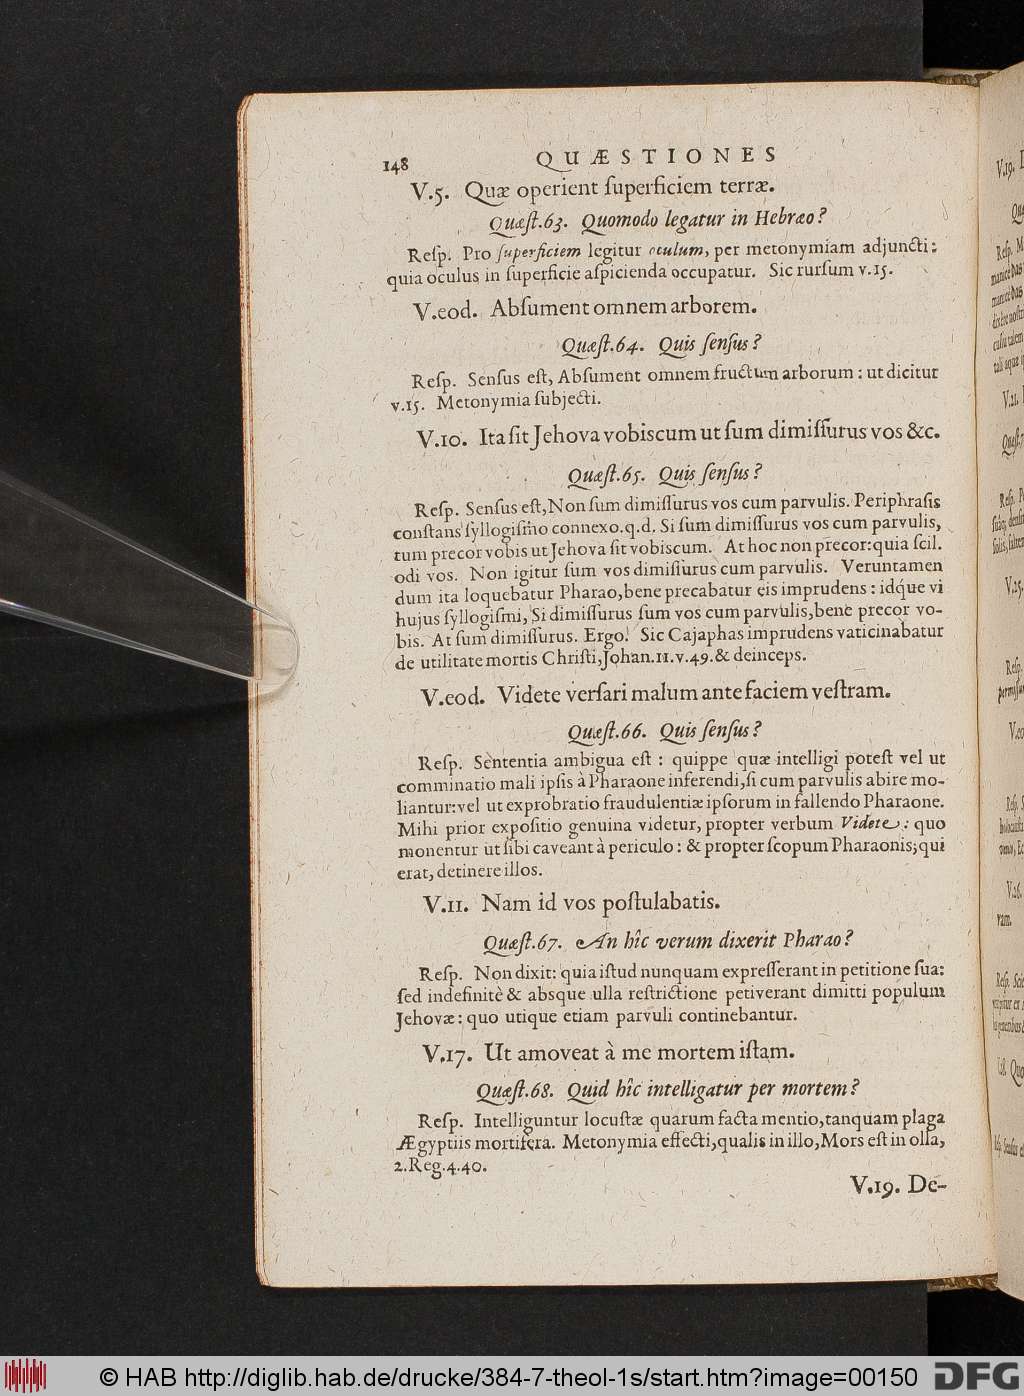 148 QUÆSTIONES
V.5. Quæ operient ſuperficiem terræ.
Quæſt.63. Quomodo legatur in Hebræo?
Reſp. Pro ſuperficiem legitur oculum, per metonymiam adjuncti:
quia oculus in ſuperficie aſpicienda occupatur. Sic rurſum v.15.
V.eod. Abſument omnem arborem.
Quæſt.64. Quis ſenſus?
Reſp. Senſus eſt, Abſument omnem fructum arborum: ut dicitur
v.15. Metonymia ſubjecti.
V.10. Ita ſit Jehova vobiscum ut ſum dimiſſurus vos &c.
Quæſt.65. Quis ſenſus?
Reſp. Senſus eſt, Non ſum dimiſſurus vos cum parvulis. Periphraſis
conſtans ſyllogiſmo connexo.q.d. Si ſum dimiſſurus vos cum parvulis,
tum precor vobis ut Jehova ſit vobiscum. At hoc non precor: quia ſcil.
odi vos. Non igitur ſum vos dimiſſurus cum parvulis. Veruntamen
dum ita loquebatur Pharao, bene precabatur eis imprudens: idq́ue vi
hujus ſyllogiſmi, Si dimiſſurus ſum vos cum parvulis, bene precor vo-
bis. At ſum dimiſſurus. Ergo. Sic Cajaphas imprudens vaticinabatur
de utilitate mortis Chriſti, Johan.11.v.49.& deinceps.
V.eod. Videte verſari malum ante faciem veſtram.
Quæſt.66. Quis ſenſus?
Reſp. Sententia ambigua eſt: quippe quæ intelligi poteſt vel ut
comminatio mali ipſis à Pharaone inferendi, ſi cum parvulis abire mo-
liantur: vel ut exprobratio fraudulentiæ ipſorum in fallendo Pharaone.
Mihi prior expoſitio genuina videtur, propter verbum Videte: quo
monentur ut ſibi caveant à periculo: & propter ſcopum Pharaonis, qui
erat, detinere illos.
V.11. Nam id vos poſtulabatis.
Quæſt.67. An hîc verum dixerit Pharao?
Reſp. Non dixit: quia iſtud nunquam expreſſerant in petitione ſua:
ſed indefinitè & absque ulla reſtrictione petiverant dimitti populum
Jehovæ: quo utique etiam parvuli continebantur.
V.17. Ut amoveat à me mortem iſtam.
Quæſt.68. Quid hîc intelligatur per mortem?
Reſp. Intelliguntur locuſtæ quarum facta mentio, tanquam plaga
Ægyptiis mortifera. Metonymia effecti, qualis in illo, Mors eſt in olla,
2.Reg.4.40.
V.19. De-
© HAB http://diglib.hab.de/drucke/384-7-theol-1s/start.htm?image=00150
DFG